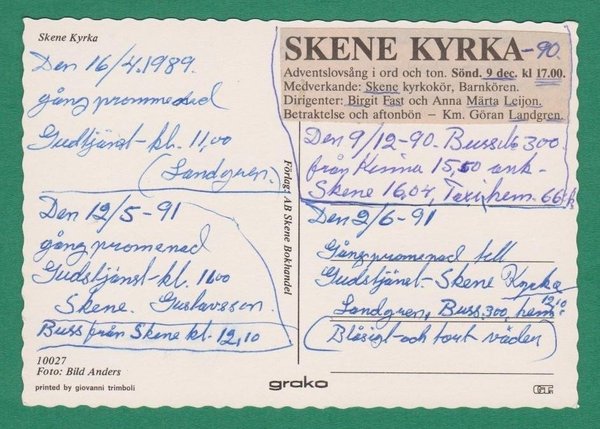 Skene Kyrka
Den 16/4.1989.
gång prommenad
Gudtjänst-kl. 11,00
(Landgren.)
Den 12/5-91
gång promenad
Gudstjänst-kl. 11.00
Skene. Gustavsson.
Buss från Skene kl. 12,10
10027
Foto: Bild Anders
printed by giovanni trimboli
Förlag: AB Skene Bokhandel
grako
SKENE KYRKA-90.
Adventslovsång i ord och ton. Sönd. 9 dec. kl 17.00.
Medverkande: Skene kyrkokör, Barnkören.
Dirigenter: Birgit Fast och Anna Märta Leijon.
Betraktelse och aftonbön – Km. Göran Landgren.
Den 9/12-90. Buss 300.
från Kinna 15,50 ank-
Skene 16,04, Taxi, hem. 66:k
Den 2/6-91
Gångpromenad till
Gudstjänst-Skene Kyrka
Landgren, Buss, 300, hem. 12,10
(Blåsigt och torrt väder)